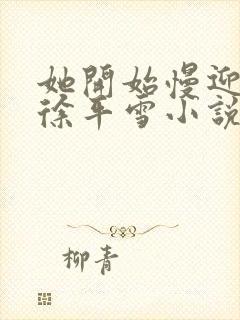 她開始慢迎
徐平雪小說
柳青